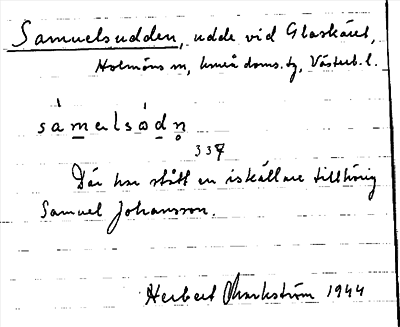 Samuelsudden, udde vid Glaskäret,
Holmöns sn, Umeå doms. tg, Västerb. l.
sàmɐlsòdn̥
337
Där har stått en iskällare tillhörig
Samuel Johansson.
Herbert Markström 1944